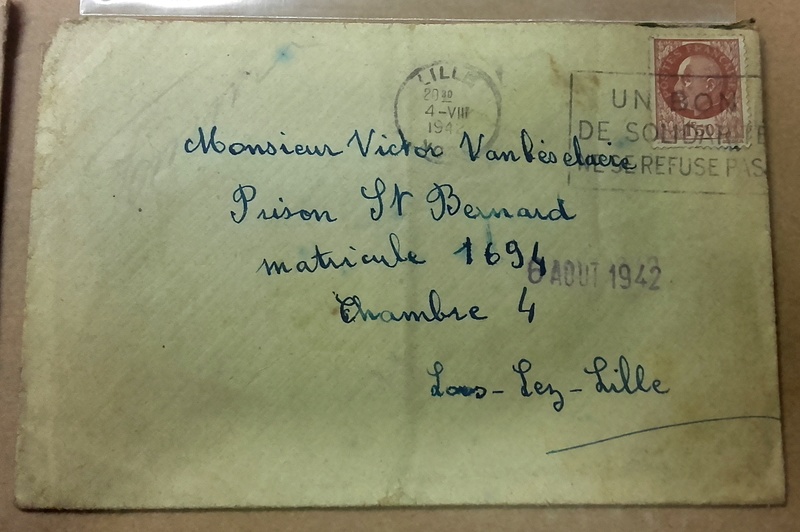 LILLE
20 30
4-VIII
194
UN BON
DE SOLIDARITE
NE SE REFUSE PAS
1F50
Monsieur Victor Vanbéselaere
Prison St Bernard
matricule 1694
6 AOUT 1942
Chambre 4
Loos-Lez-Lille